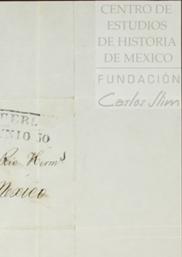 CENTRO DE
ESTUDIOS
DE HISTORIA
DE MEXICO
FUNDACIÓN
Carlos Slim
FERI
JUNIO 30
Rio Herms
Mexico